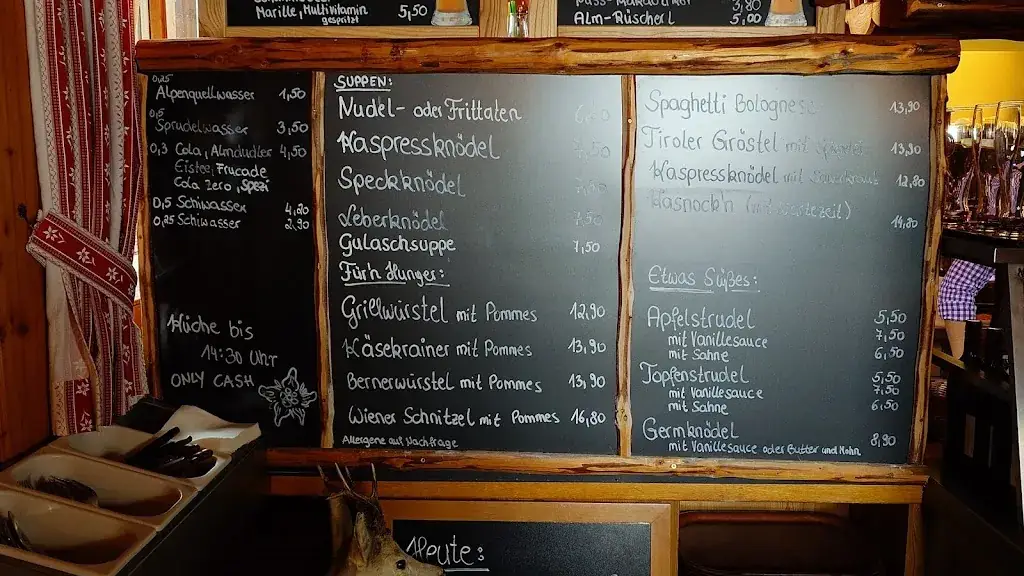 Marille, Multivitamin
gespritzt 5,50
3,80
Alm-Rüscherl 5,00
0,25
Alpenquellwasser 1,50
0,5
Sprudelwasser 3,50
0,3 Cola, Almdudler 4,50
Eistee, Frucade
Cola Zero, Spezi
0,5 Schiwasser 4,20
0,25 Schiwasser 2,30
Küche bis
14:30 Uhr
ONLY CASH
SUPPEN:
Nudel- oder Frittaten
Kaspressknödel
Speckknödel
Leberknödel 7,50
Gulaschsuppe 7,50
Für'n Hunger:
Grillwürstel mit Pommes 12,90
Käsekrainer mit Pommes 13,90
Bernerwürstel mit Pommes 13,90
Wiener Schnitzel mit Pommes 16,80
Allergene auf Nachfrage
Spaghetti Bolognese 13,90
Tiroler Gröstel mit 13,90
Kaspressknödel mit Sauerkraut 12,80
Kasnock'n 14,80
Etwas Süßes:
Apfelstrudel 5,50
mit Vanillesauce 7,50
mit Sahne 6,50
Topfenstrudel 5,50
mit Vanillesauce 7,50
mit Sahne 6,50
Germknödel
mit Vanillesauce oder Butter und Mohn 8,90
Heute: